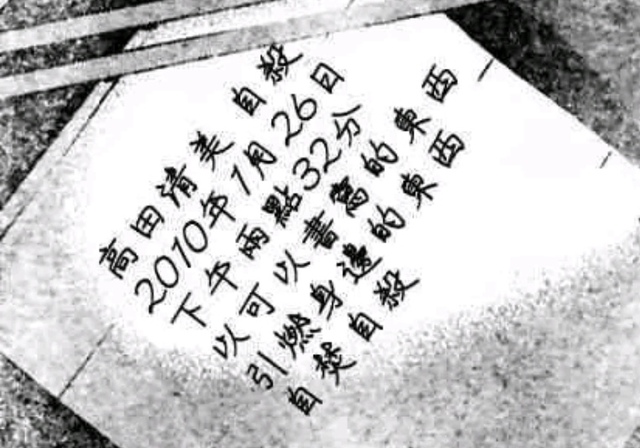 高田清美 自殺
2010年1月26日
下午兩點32分
以可以書寫的東西
引燃身邊的東西
自焚自殺